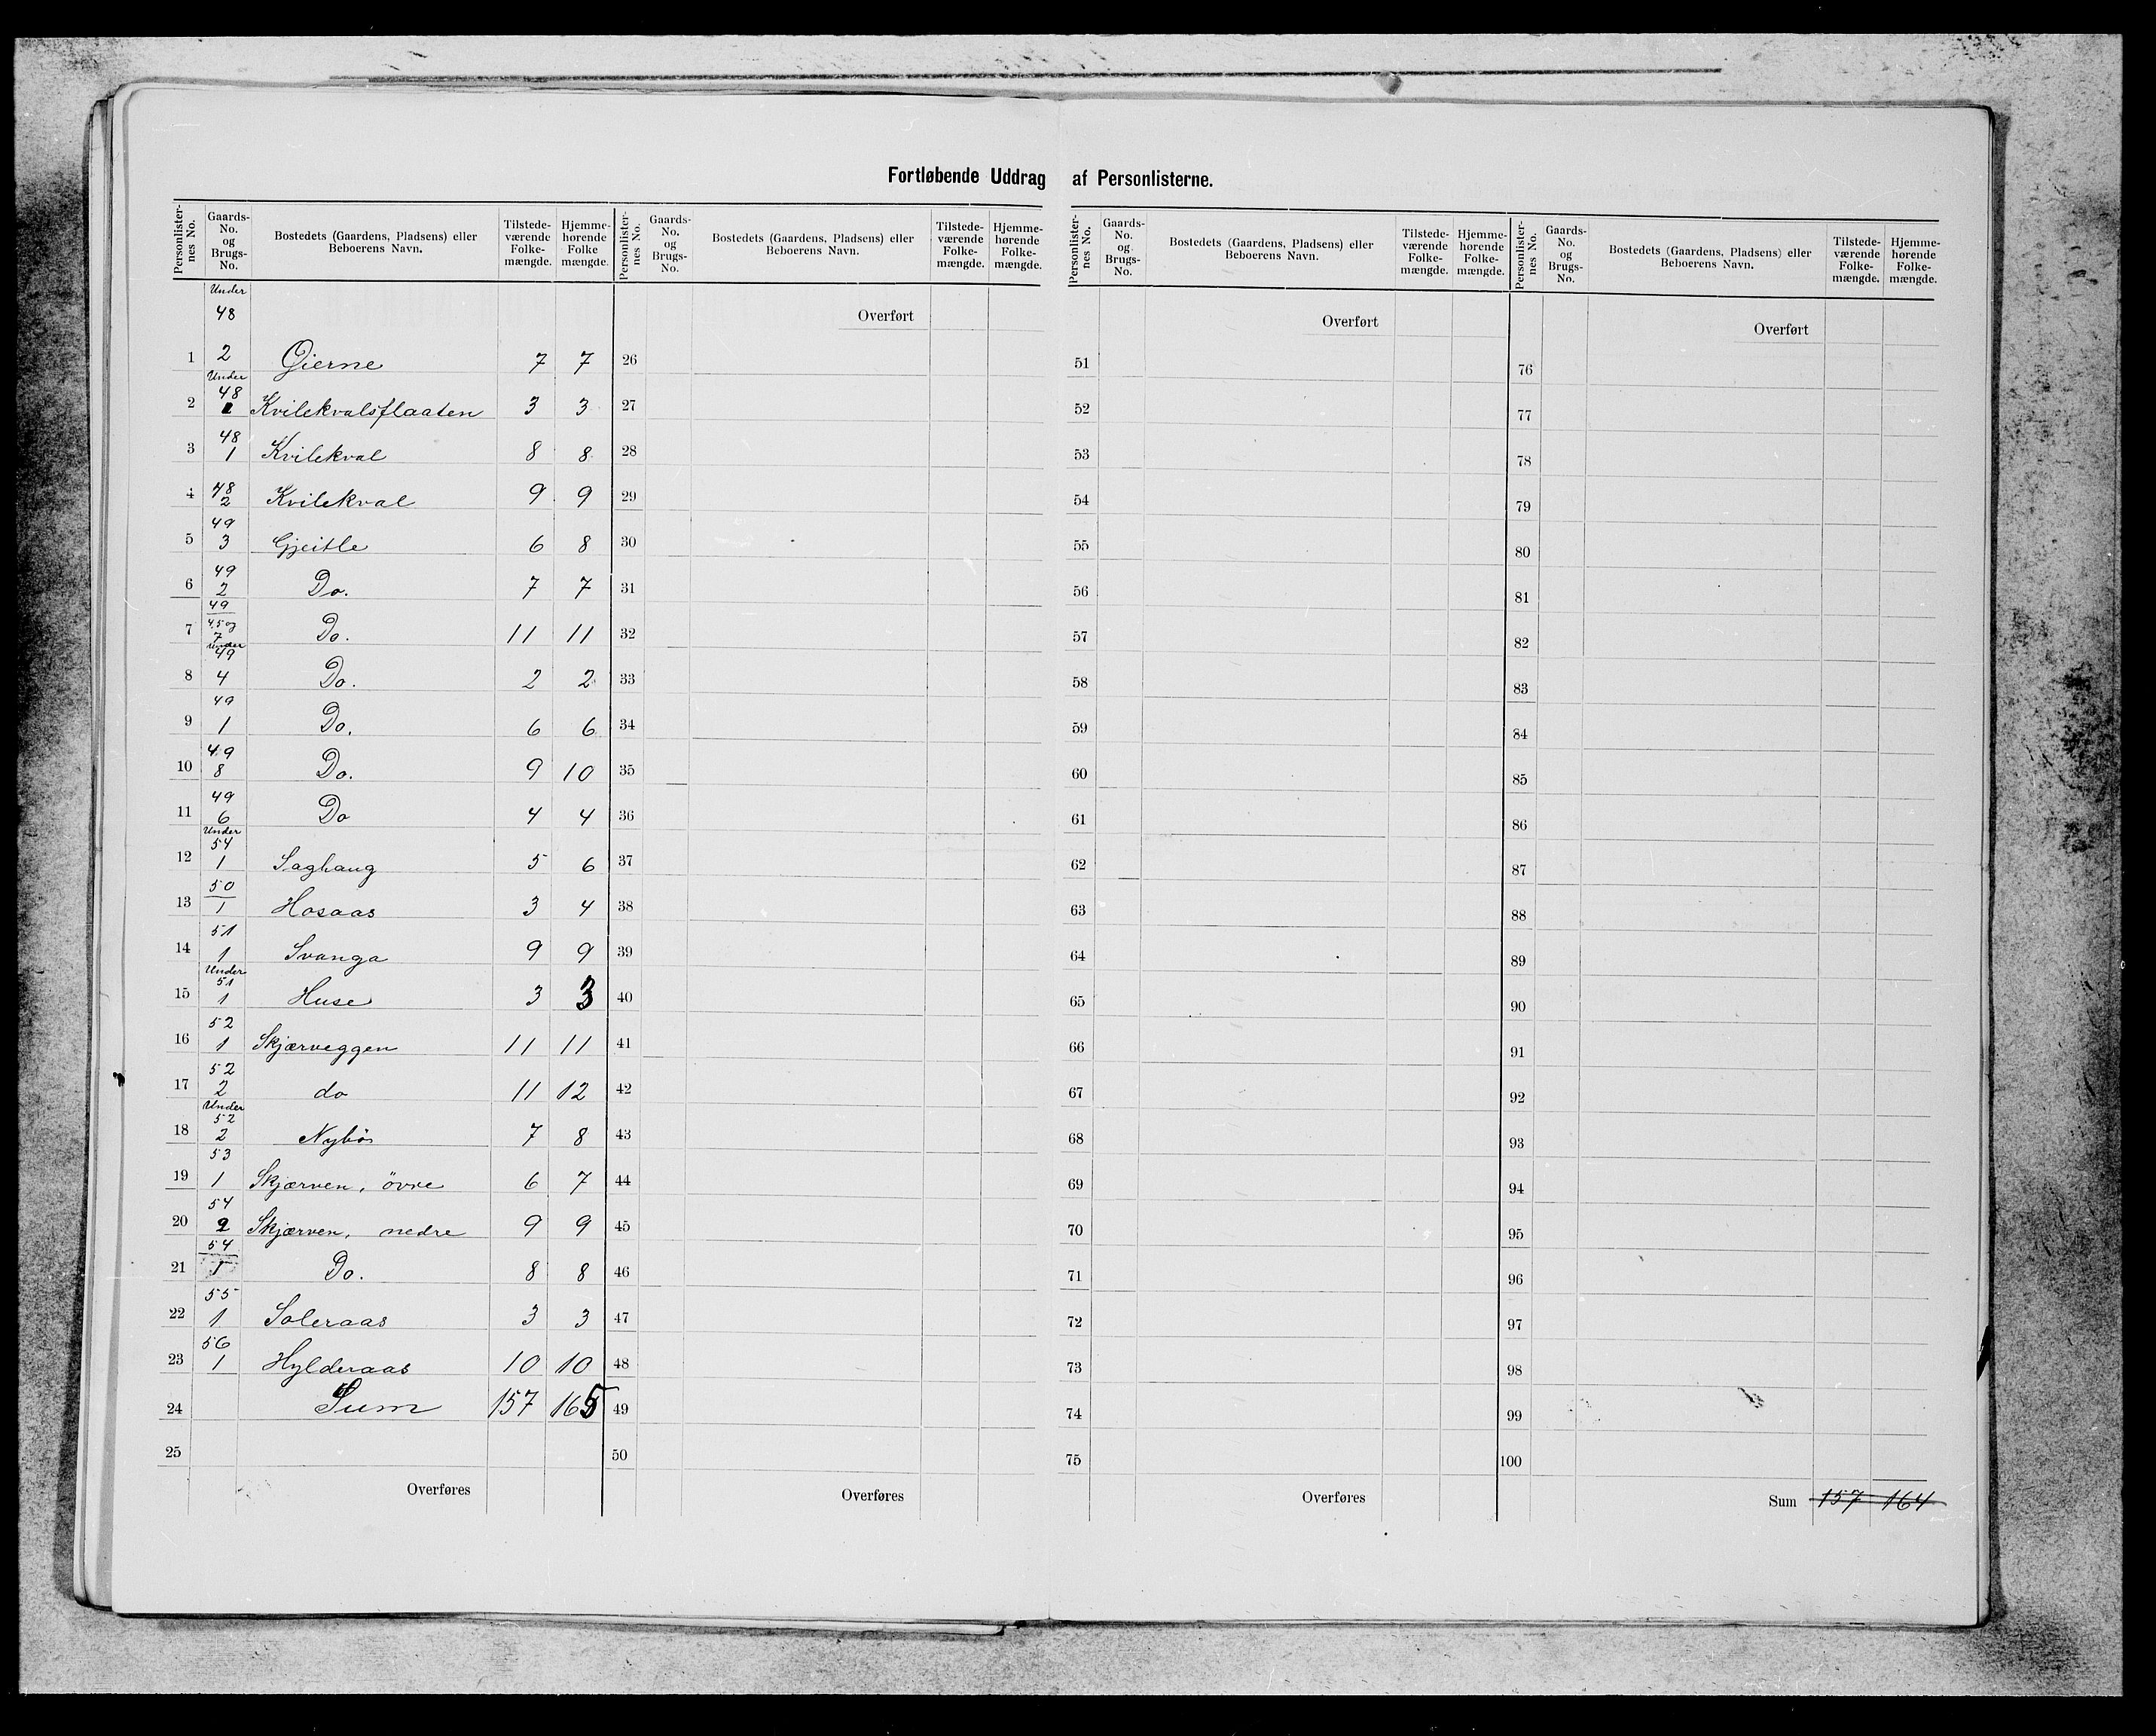 Fortløbende Uddrag af Personlisterne.
Personlister-nes No. Gaards-No. og Brugs-No. Bostedets (Gaardens, Pladsens) eller Beboerens Navn. Tilstede-værende Folke-mængde. Hjemme-hørende Folke mængde.
Personlister-nes No. Gaards-No. og Brugs-No. Bostedets (Gaardens, Pladsens) eller Beboerens Navn. Tilstede-værende Folke-mængde. Hjemme-hørende Folke-mængde.
Personlister-nes No. Gaards-No. og Brugs-No. Bostedets (Gaardens, Pladsens) eller Beboerens Navn. Tilstede-værende Folke-mængde. Hjemme-hørende Folke-mængde.
Personlister-nes No. Gaards-No. og Brugs-No. Bostedets (Gaardens, Pladsens) eller Beboerens Navn. Tilstede-værende Folke-mængde. Hjemme-hørende Folke-mængde.
1 Under 48 2 Gierne 7 7
2 Under 48 1 Kvilekvalsflaaten 3 3
3 48 1 Kvilekval 8 8
4 48 2 Kvilekval 9 9
5 49 3 Gjeitle 6 8
6 49 2 Do. 7 7
7 49 4,5 og 7 Do. 11 11
8 Under 49 4 Do. 2 2
9 49 1 Do. 6 6
10 49 8 Do. 9 10
11 49 6 Do 4 4
12 Under 54 1 Saghaug 5 6
13 50 1 Hosaas 3 4
14 51 1 Svanga 9 9
15 Under 51 1 Huse 3 3
16 52 1 Skjærveggen 11 11
17 52 2 do 11 12
18 Under 52 2 Nybö 7 8
19 53 1 Skjærven, övre 6 7
20 54 2 Skjærven, nedre 9 9
21 54 1 Do. 8 8
22 55 1 Soleraas 3 3
23 56 1 Hylderaas 10 10
24 Sum 157 165
25
Overføres
Overført
26
27
28
29
30
31
32
33
34
35
36
37
38
39
40
41
42
43
44
45
46
47
48
49
50
Overføres
Overført
51
52
53
54
55
56
57
58
59
60
61
62
63
64
65
66
67
68
69
70
71
72
73
74
75
Overføres
Overført
76
77
78
79
80
81
82
83
84
85
86
87
88
89
90
91
92
93
94
95
96
97
98
99
100
Sum 157 164